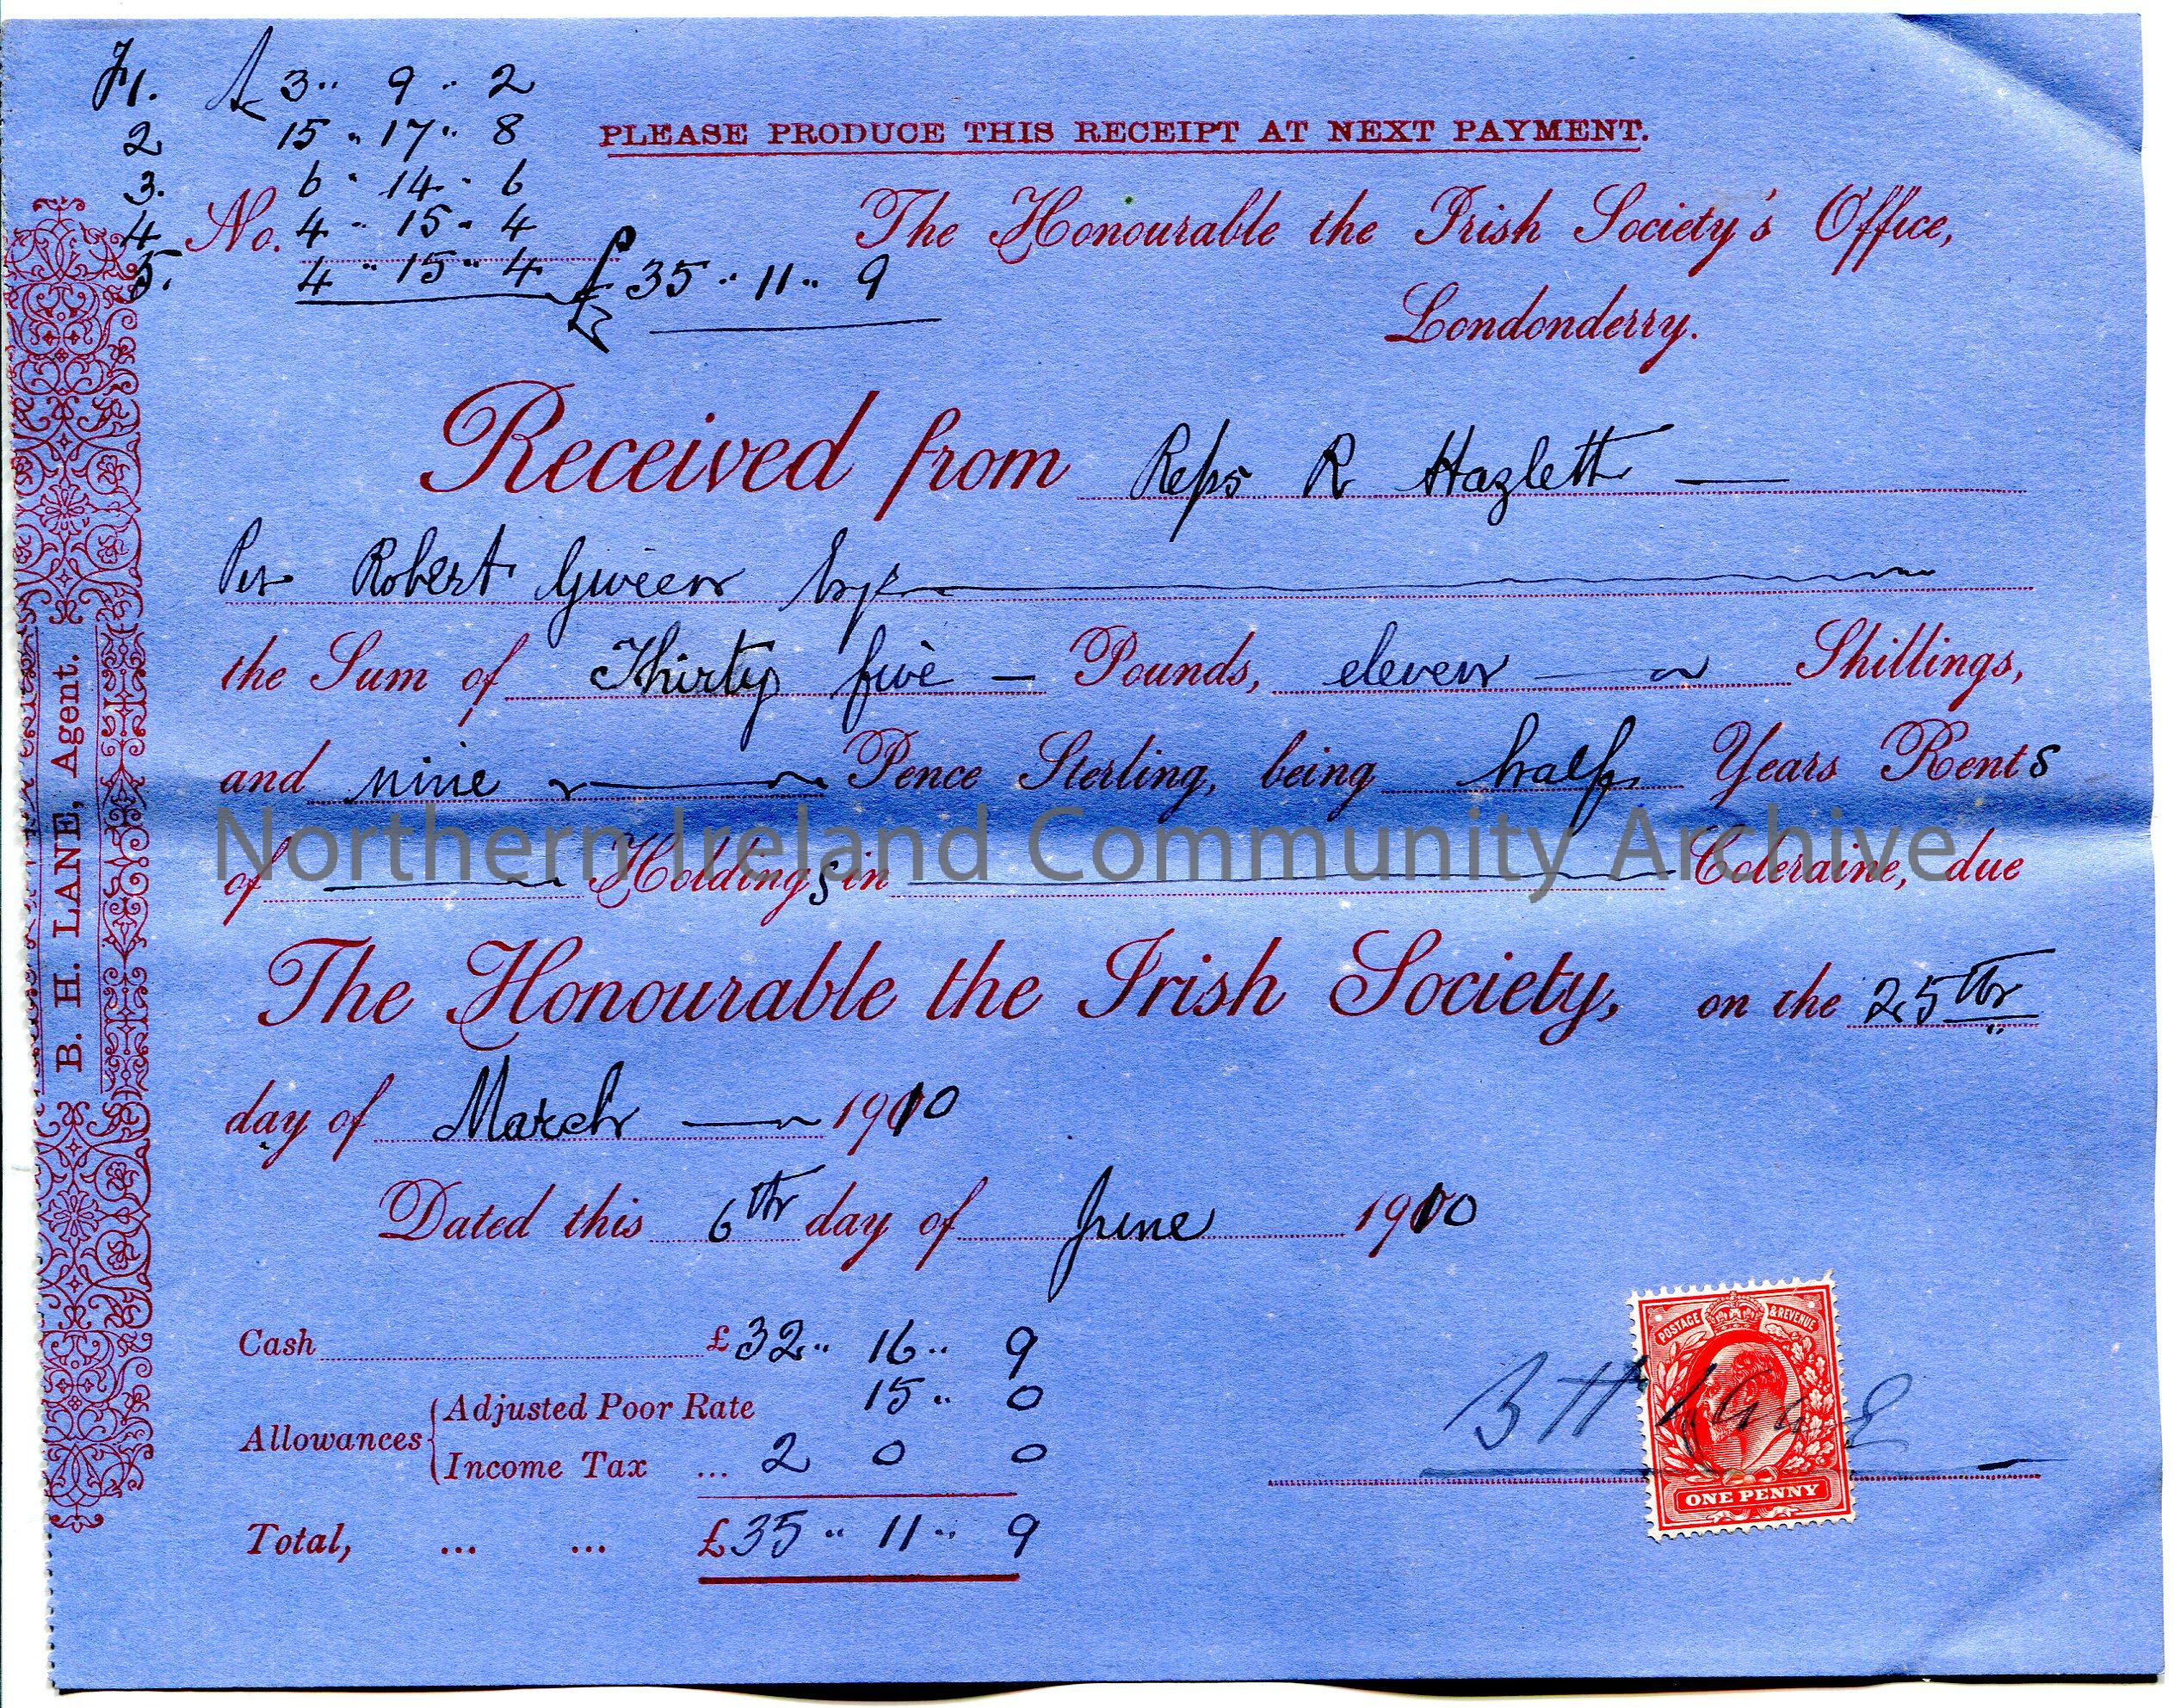 1. £3 .. 9 .. 2
2 15 .. 17 .. 8
PLEASE PRODUCE THIS RECEIPT AT NEXT PAYMENT.
3. 6 .. 14 .. 6
4 No. 4 .. 15 .. 4
The Honourable the Irish Society's Office,
5. 4 .. 15 .. 4 £35 .. 11 .. 9
Londonderry.
Received from Reps R Hazlett
Per Robert Given Esqr
the Sum of Thirty five Pounds, eleven Shillings,
and nine Pence Sterling, being half Years Rents
Northern Ireland Community Archive
of Holdings in Coleraine, due
The Honourable the Irish Society, on the 25th
day of March 1910
Dated this 6th day of June 1910
Cash £32 .. 16 .. 9
Allowances
Adjusted Poor Rate 15 .. 0
Income Tax ... 2 0 0
Total, ... ... £35 .. 11 .. 9
B H Lane
POSTAGE & REVENUE
ONE PENNY
B. H. LANE, Agent.